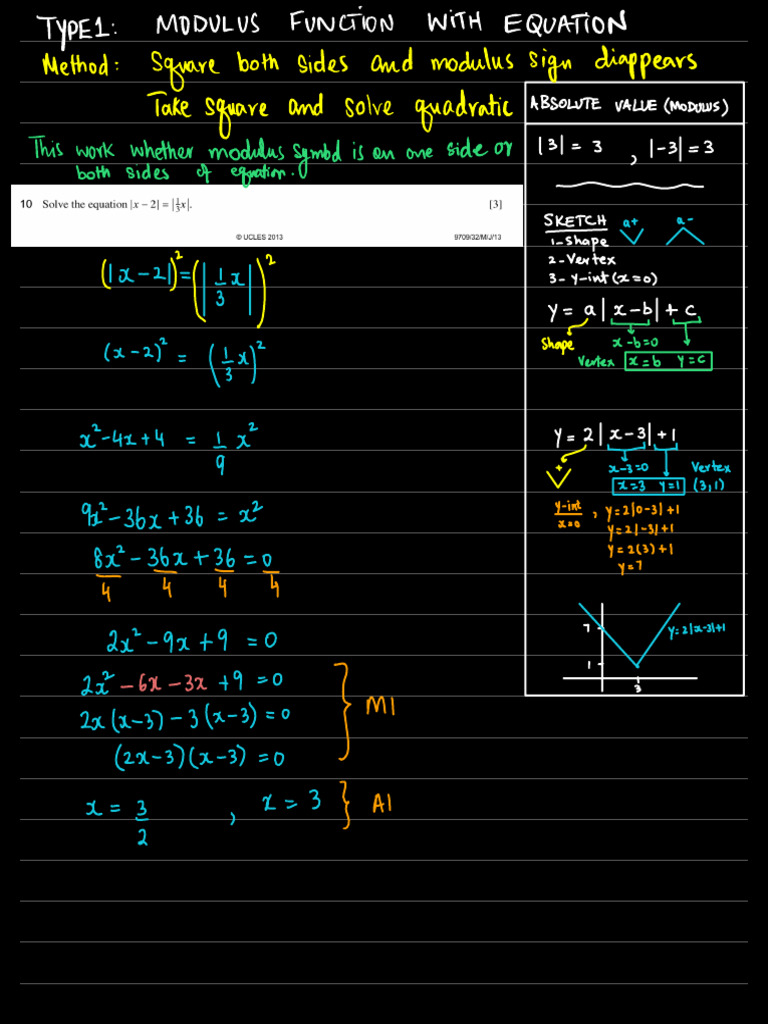 TYPE1: MODULUS FUNCTION WITH EQUATION
Method: Square both sides and modulus sign diappears
Take square and solve quadratic
This work whether modulus symbol is on one side or
both sides of equation.
10 Solve the equation |x − 2| = |⅓x|. [3]
© UCLES 2013 9709/32/M/J/13
(|x-2|)² = (|1/3 x|)²
(x-2)² = (1/3 x)²
x²-4x+4 = 1/9 x²
9x²-36x+36 = x²
8x²-36x+36=0
4 4 4 4
2x²-9x+9=0
2x²-6x-3x+9=0
2x(x-3)-3(x-3)=0
(2x-3)(x-3)=0
M1
x=3/2 , x=3
A1
ABSOLUTE VALUE (MODULUS)
|3|=3 , |-3|=3
SKETCH a+ a-
1-Shape
2-Vertex
3-Y-int (x=0)
y=a|x-b|+c
Shape x-b=0
Vertex x=b y=c
y=2|x-3|+1
+ x-3=0 Vertex
x=3 y=1 (3,1)
y-int
x=0 , y=2|0-3|+1
y=2|-3|+1
y=2(3)+1
y=7
7 y=2|x-3|+1
1
3